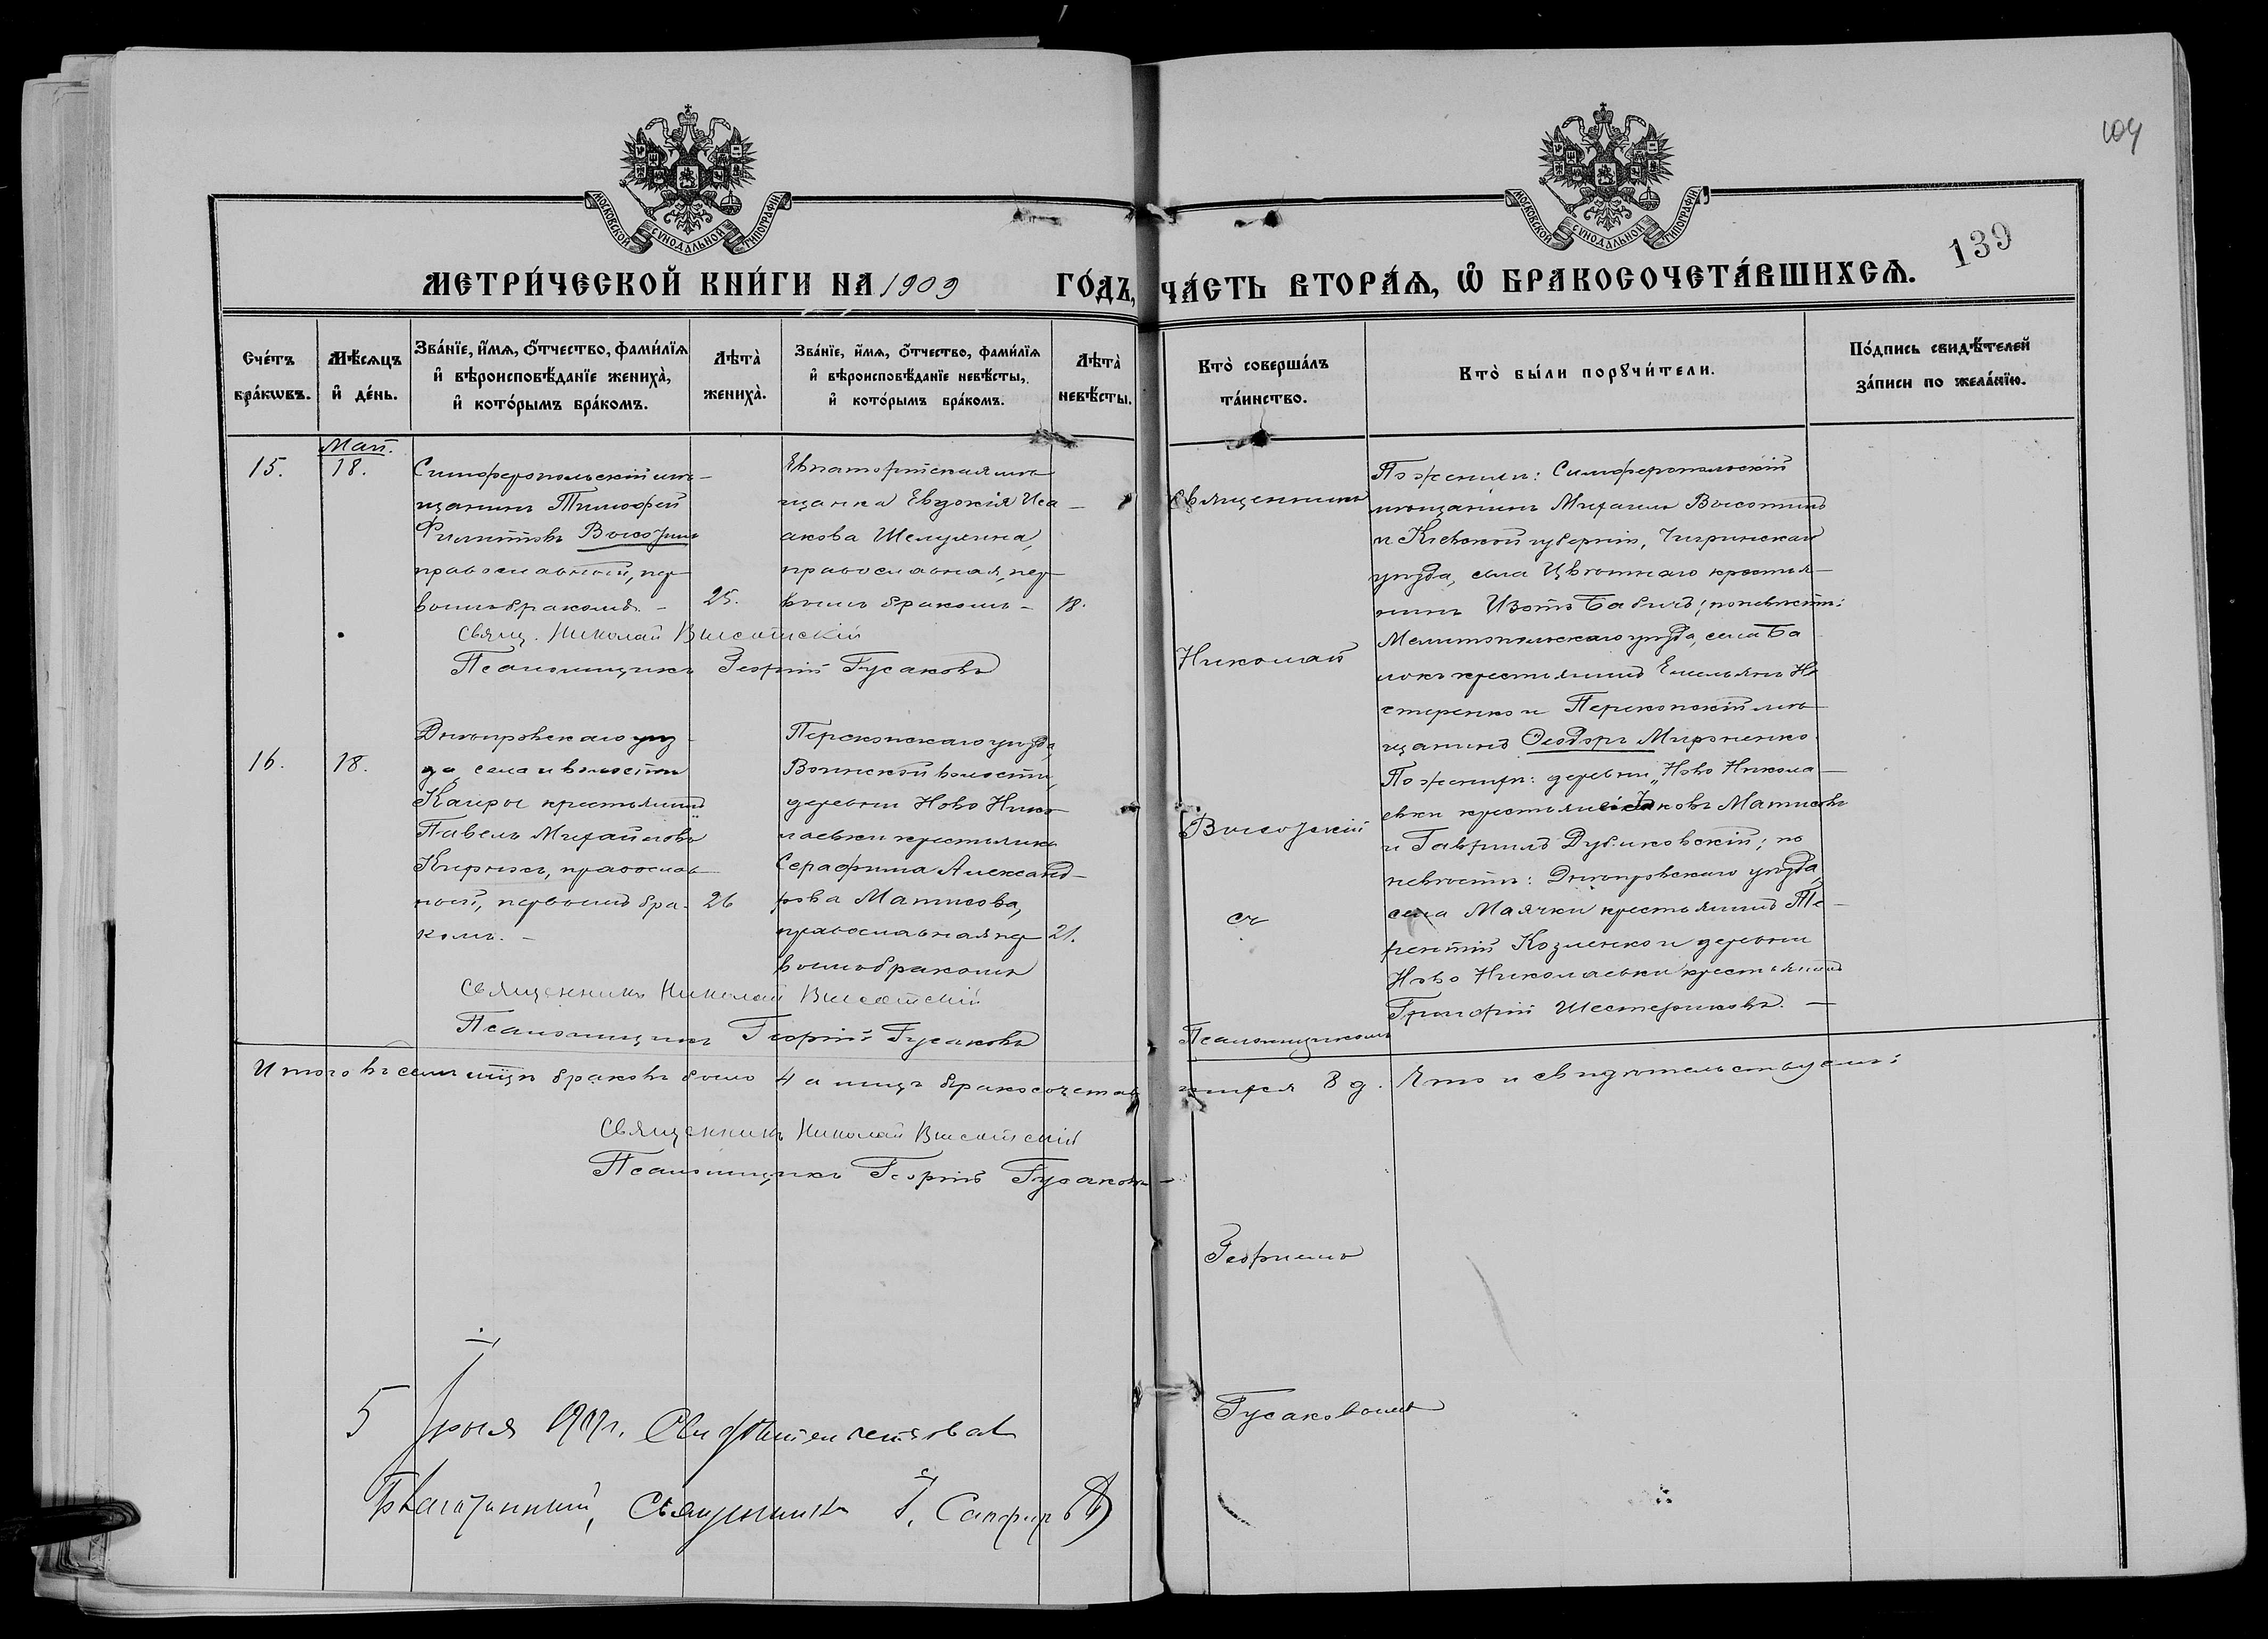 104
139
МОСКОВСКОЙ СѴНОДАЛЬНОЙ ТИПОГРАФІИ
МОСКОВСКОЙ СѴНОДАЛЬНОЙ ТИПОГРАФІИ
МЕТРИ́ЧЕСКОЙ КНИ́ГИ НА 1909 ГО́ДЪ, ЧА́СТЬ ВТОРА́Ѧ, Ѽ БРАКОСОЧЕТА́ВШИХСѦ.
Сче́тъ
бра́кѡвъ.
Мѣ́сѧцъ
и҆ де́нь.
Зва́нїе, и҆́мѧ, ѻ҆́тчество, фами́лїѧ
и҆ вѣроисповѣ́данїе жениха̀,
и҆ кото́рымъ бра́комъ.
Лѣта̀
жениха̀.
Зва́нїе, и҆́мѧ, ѻ҆́тчество, фами́лїѧ
и҆ вѣроисповѣ́данїе невѣ́сты,
и҆ кото́рымъ бра́комъ.
Лѣта̀
невѣ́сты.
Кто̀ соверша́лъ
та́инство.
Кто̀ бы́ли порꙋчи́тели.
По́дпись свидѣ́телей
за́писи по жела́нїю.
15.
Май.
18.
Симферопольскій мѣ-
щанинъ Тимофей
Филипповъ Высоцкій
православный, пер-
вымъ бракомъ. -
25.
Евпаторійская мѣ-
щанка Евдокія Иса-
акова Шелухина,
православная, пер-
вымъ бракомъ -
18.
Свящ. Николай Высотскій
Псаломщикъ Георгій Гусаковъ
Священникъ
Николай
Высоцкій
съ
Псаломщикомъ
Георгіемъ
Гусаковымъ
По женихѣ: Симферопольскій
мѣщанинъ Михаилъ Высоткий
и Кіевской губерніи, Чигринскаго
уѣзда, села Цвѣтнаго крестья-
нинъ Изотъ Бабичъ; по невѣстѣ:
Мелитопольскаго уѣзда, села Ба
локъ крестьянинъ Емельянъ Не
стеренко и Перекопскій мѣ-
щанинъ Ѳеодоръ Мироненко.
16.
18.
Днѣпровскаго уѣз-
да, села и волости
Каиры крестьянинъ
Павелъ Михайловъ
Кирикъ, православ-
ный, первымъ бра-
комъ. -
26
Перекопскаго уѣзда,
Воинской волости,
деревни Ново Нико-
лаевки крестьянка
Серафима Александ-
рова Матисова,
православная пер-
вымъ бракомъ
21.
Священникъ Николай Высотскій
Псаломщикъ Георгій Гусаковъ
По женихѣ: деревни Ново Никола-
евки крестьяне Яковъ Матисовъ
и Гавріилъ Дубиковскій; по
невѣстѣ: Днѣпровскаго уѣзда,
села Маячки крестьянинъ Те-
рентій Козленко и деревни
Ново Николаевки крестьянинъ
Григорій Шестериковъ. -
Итого въ семъ мѣсяцѣ браковъ было 4 а лицъ бракосочетав
шихся 8 д. Что и свидѣтельствуемъ:
Священникъ Николай Высотскій
Псаломщикъ Георгій Гусаковъ -
5 Іюня 1909 г. Свидѣтельствовалъ
Благочинный, Священникъ І. Сапфировъ